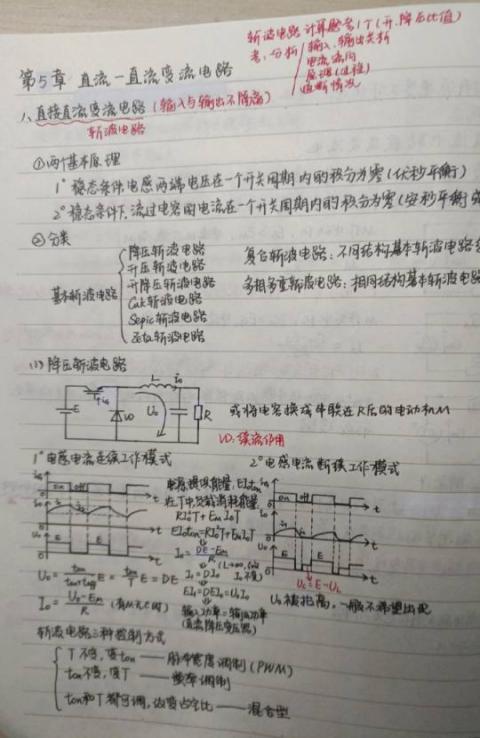 斩波电路计算题考1个(升、降压比值)
考:分析 输入、输出关系
电流流向
通断情况
第5章 直流-直流变流电路
1、直接直流变流电路(输入与输出不隔离)
斩波电路
①两个基本原理
1° 稳态条件电感两端电压在一个开关周期内的积分为零(伏秒平衡)
2° 稳态条件下,流过电容的电流在一个开关周期内的积分为零(安秒平衡
②分类
基本斩波电路
降压斩波电路
升压斩波电路
升降压斩波电路
Cuk斩波电路
Sepic斩波电路
Zeta斩波电路
复合斩波电路:不同结构基本斩波电路
多相多重斩波电路:相同结构基本斩波电路
(1) 降压斩波电路
E VD L i₀ U₀ R
或将电容换成串联在R后的电动机M
VD:续流作用
1° 电感电流连续工作模式
2° 电感电流断续工作模式
on off
电源提供能量:EI₀ton
在T中负载消耗能量
RI₀²T+EmI₀T
EI₀ton=RI₀²T+EmI₀T
I₀=(DE-Em)/R
I₁=DI₀
EI₁=DEI₀=U₀I₀
输入功率=输出功率
(直流降压变压器)
U₀=ton/(ton+toff)E=ton/T E=DE
I₀=(U₀-Em)/R
U₀被抬高,一般不希望出现
斩波电路三种控制方式
T不变,变ton——脉冲宽度调制(PWM)
ton不变,变T——频率调制
ton和T都可调,改变占空比——混合型